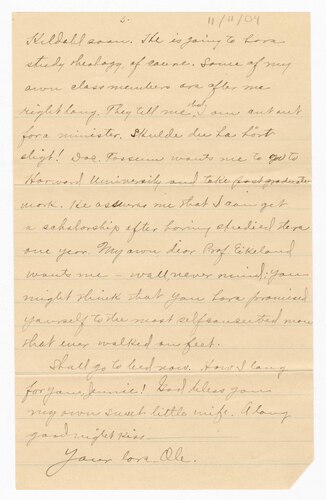 5.
11/11/04
Kildall soon. He is going to
study theology, of course. Some of my
own class members are after me
right long. They tell me that I am cut out
for a minister. Skulde du ha hört
sligt! Doc. Fossum wants me to go to
Harvard University and take post graduate
work. He assures me that I can get
a scholarship after having studied there
one year. My own dear Prof. Eikeland
wants me — well never mind: you
might think that you have promised
yourself to the most selfconceited man
that ever walked on feet.
Shall go to bed now. How I long
for you, ! God bless you
my own sweet little wife. A long
good night kiss.
Your Ole.